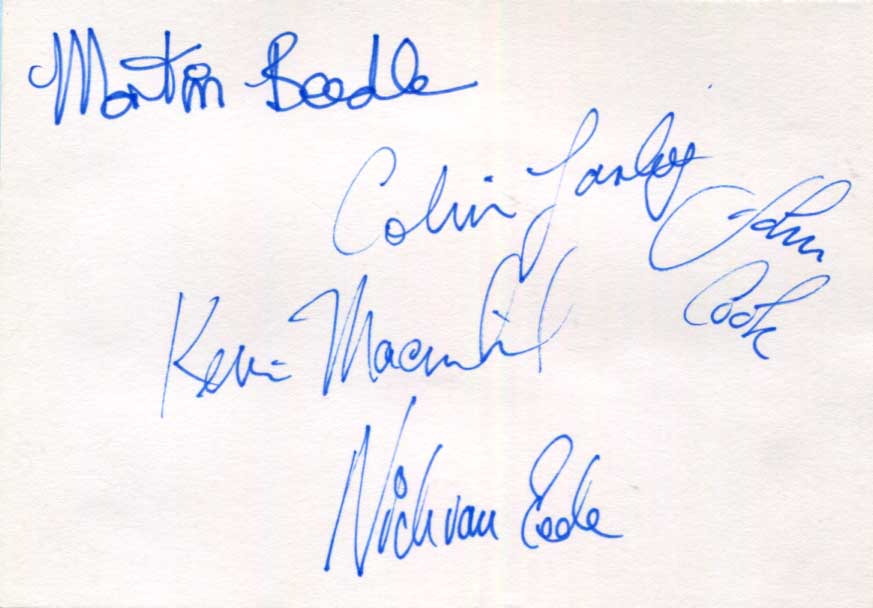 Martin Beedle
Colin Farley
John
Cook
Kevin Macmichael
Nick van Eede